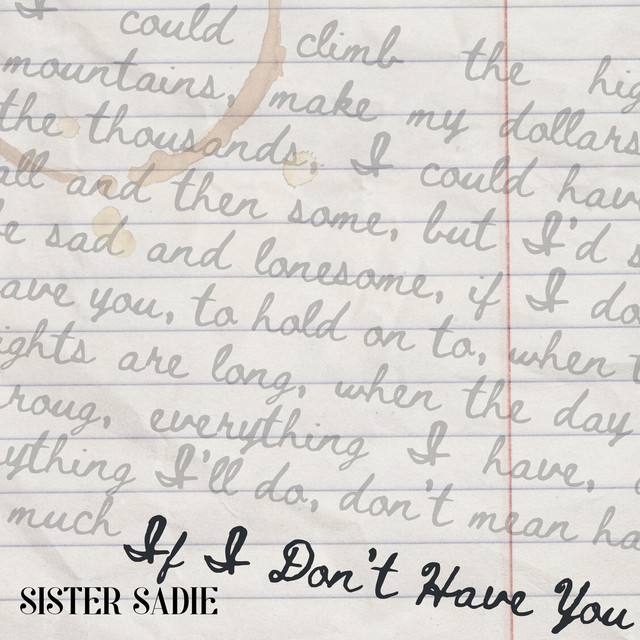 I could climb the hig
mountains, make my dollars
the thousands, I could have
all and then some, but I'd s
e sad and lonesome, if I do
ave you, to hold on to, when t
ights are long, when the day
roug, everything I have,
ything I'll do, don't mean ha
much
If I Don't Have You
SISTER SADIE